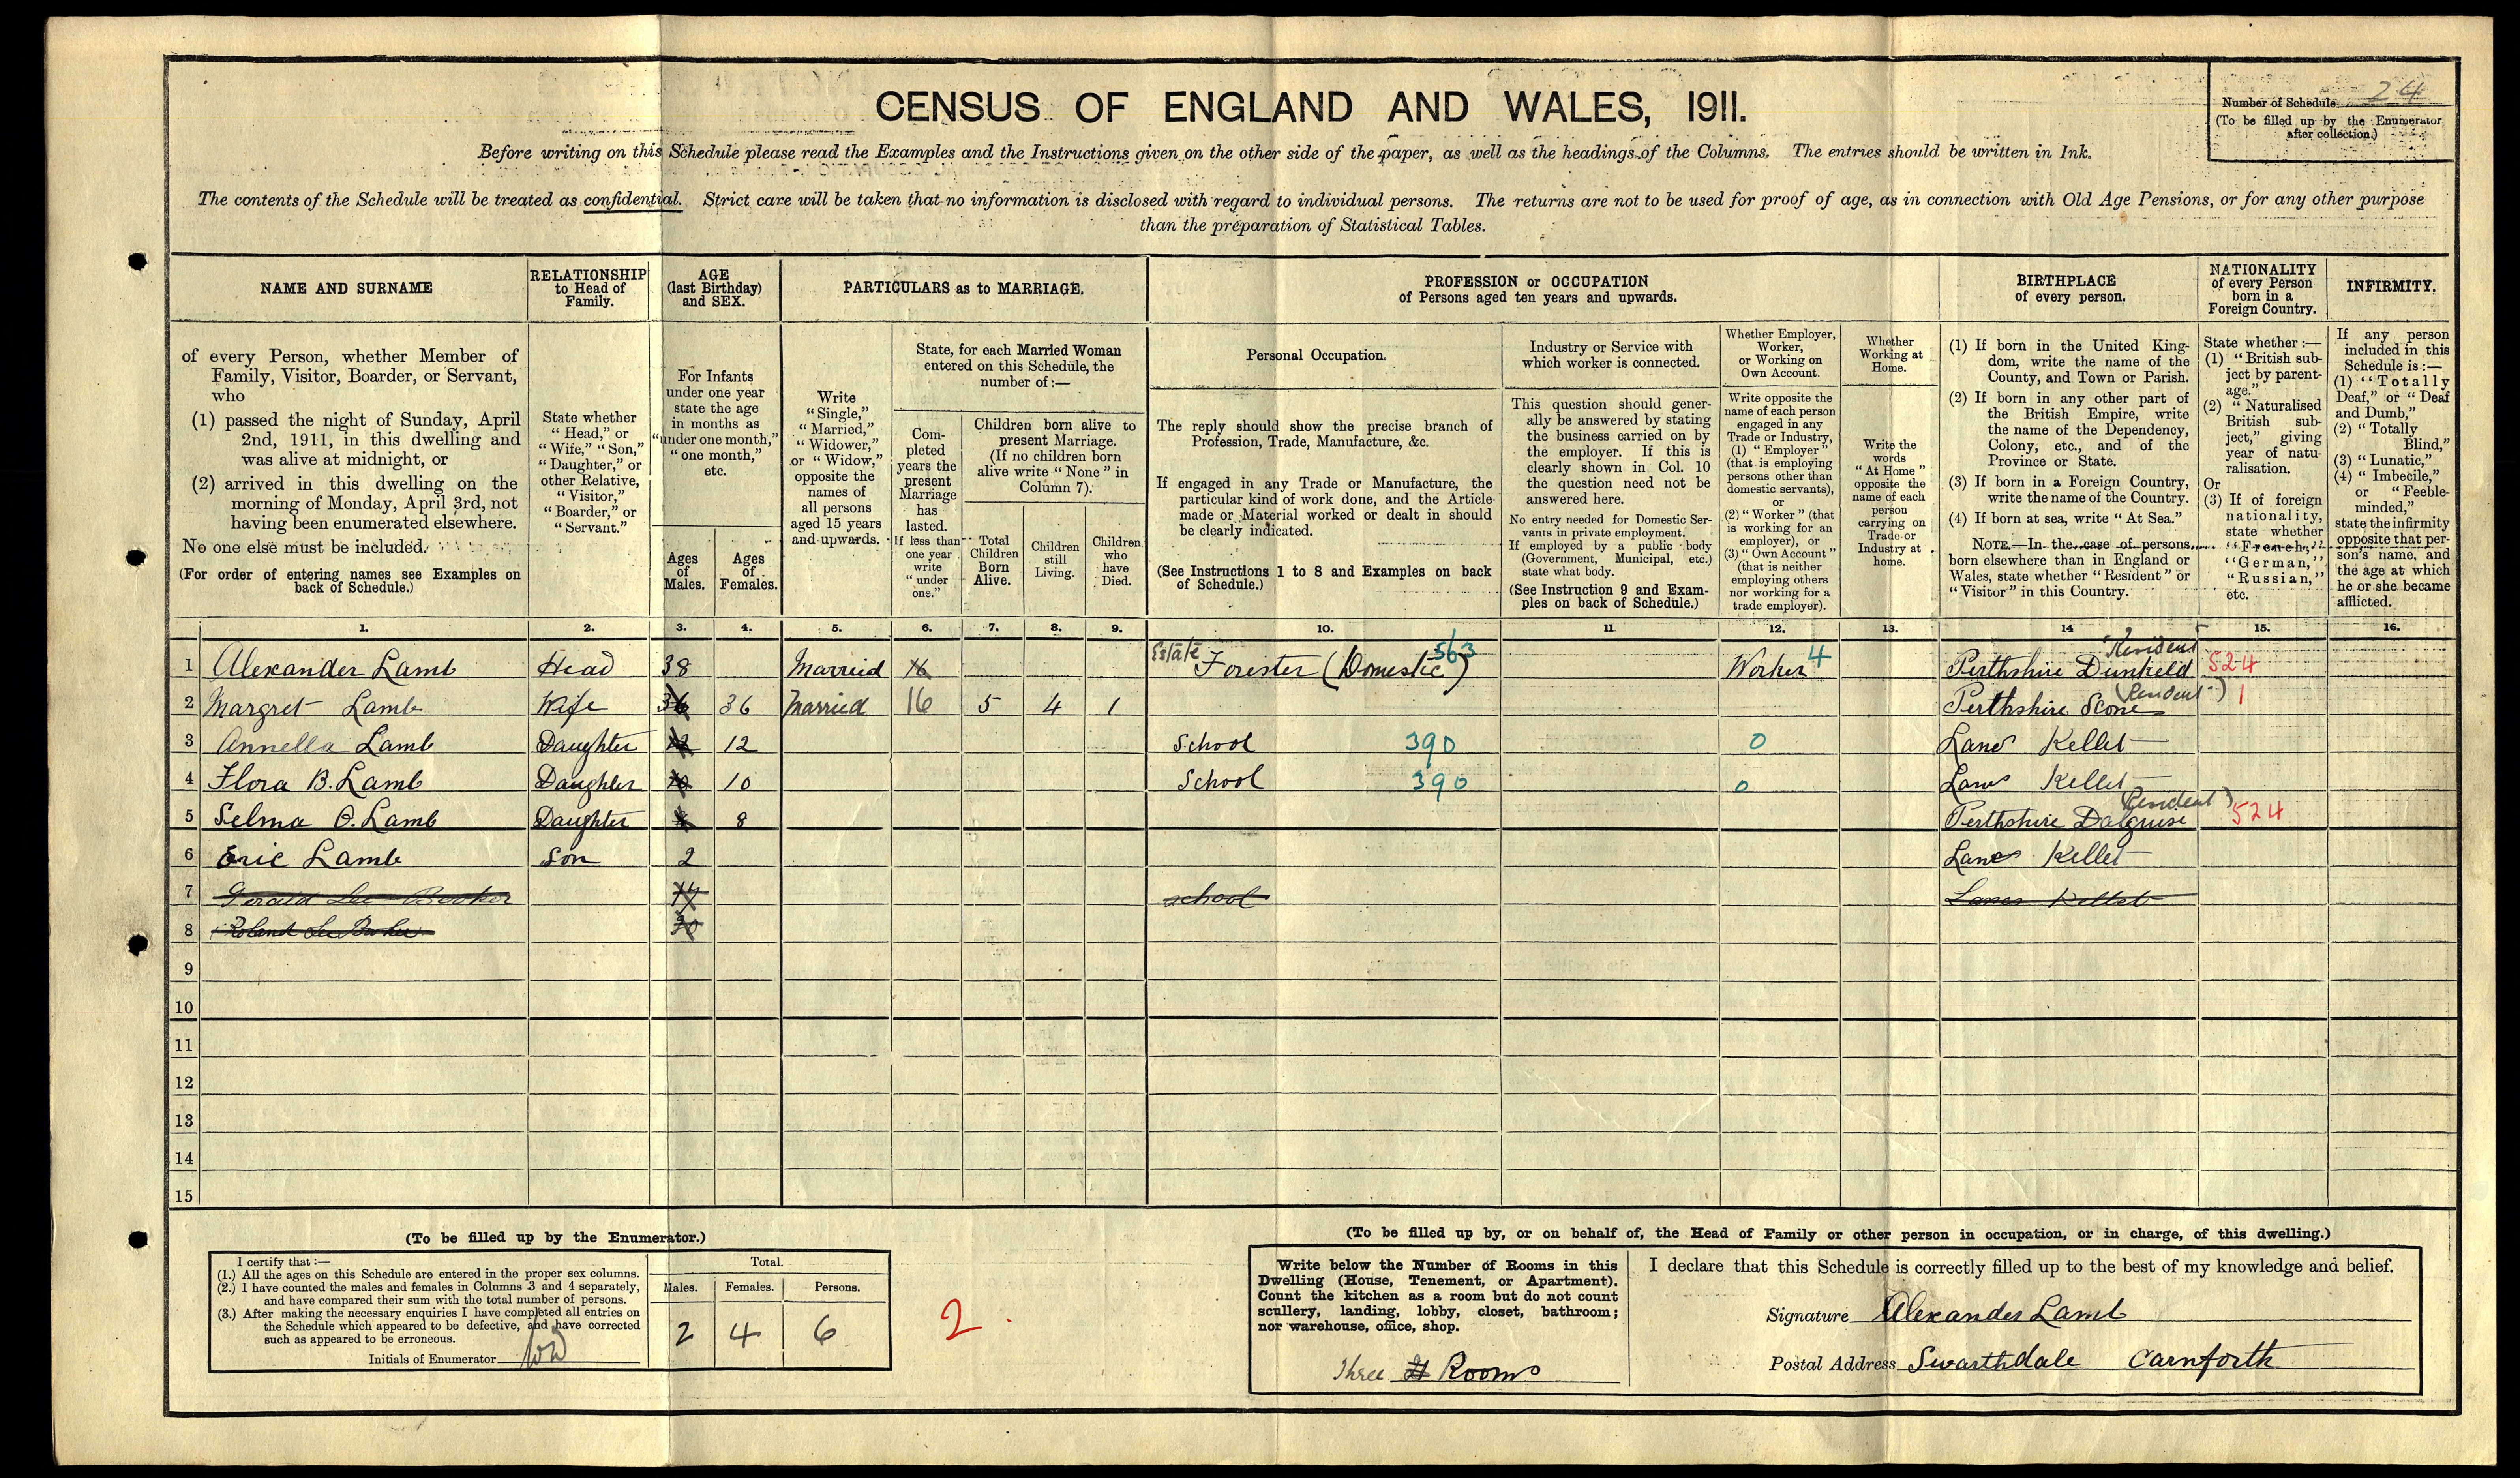 CENSUS OF ENGLAND AND WALES, 1911.
Number of Schedule 24
(To be filled up by the Enumerator
after collection.)
Before writing on this Schedule please read the Examples and the Instructions given on the other side of the paper, as well as the headings of the Columns. The entries should be written in Ink.
The contents of the Schedule will be treated as confidential. Strict care will be taken that no information is disclosed with regard to individual persons. The returns are not to be used for proof of age, as in connection with Old Age Pensions, or for any other purpose
than the preparation of Statistical Tables.
NAME AND SURNAME
of every Person, whether Member of
Family, Visitor, Boarder, or Servant,
who
(1) passed the night of Sunday, April
2nd, 1911, in this dwelling and
was alive at midnight, or
(2) arrived in this dwelling on the
morning of Monday, April 3rd, not
having been enumerated elsewhere.
No one else must be included.
(For order of entering names see Examples on
back of Schedule.)
RELATIONSHIP
to Head of
Family.
State whether
"Head," or
"Wife," "Son,"
"Daughter," or
other Relative,
"Visitor,"
"Boarder," or
"Servant."
AGE
(last Birthday)
and SEX.
For Infants
under one year
state the age
in months as
"under one month,"
"one month,"
etc.
Ages
of
Males.
Ages
of
Females.
PARTICULARS as to MARRIAGE.
Write
"Single,"
"Married,"
"Widower,"
or "Widow,"
opposite the
names of
all persons
aged 15 years
and upwards.
State, for each Married Woman
entered on this Schedule, the
number of :—
Com-
pleted
years the
present
Marriage
has
lasted.
If less than
one year
write
"under
one."
Children born alive to
present Marriage.
(If no children born
alive write "None" in
Column 7).
Total
Children
Born
Alive.
Children
still
Living.
Children
who
have
Died.
PROFESSION or OCCUPATION
of Persons aged ten years and upwards.
Personal Occupation.
The reply should show the precise branch of
Profession, Trade, Manufacture, &c.
If engaged in any Trade or Manufacture, the
particular kind of work done, and the Article
made or Material worked or dealt in should
be clearly indicated.
(See Instructions 1 to 8 and Examples on back
of Schedule.)
Industry or Service with
which worker is connected.
This question should gener-
ally be answered by stating
the business carried on by
the employer. If this is
clearly shown in Col. 10
the question need not be
answered here.
No entry needed for Domestic Ser-
vants in private employment.
If employed by a public body
(Government, Municipal, etc.)
state what body.
(See Instruction 9 and Exam-
ples on back of Schedule.)
Whether Employer,
Worker,
or Working on
Own Account.
Write opposite the
name of each person
engaged in any
Trade or Industry,
(1) "Employer"
(that is employing
persons other than
domestic servants),
or
(2) "Worker" (that
is working for an
employer), or
(3) "Own Account"
(that is neither
employing others
nor working for a
trade employer).
Whether
Working at
Home.
Write the
words
"At Home"
opposite the
name of each
person
carrying on
Trade or
Industry at
home.
BIRTHPLACE
of every person.
(1) If born in the United King-
dom, write the name of the
County, and Town or Parish.
(2) If born in any other part of
the British Empire, write
the name of the Dependency,
Colony, etc., and of the
Province or State.
(3) If born in a Foreign Country,
write the name of the Country.
(4) If born at sea, write "At Sea."
NOTE.—In the case of persons
born elsewhere than in England or
Wales, state whether "Resident" or
"Visitor" in this Country.
NATIONALITY
of every Person
born in a
Foreign Country.
State whether :—
(1) "British sub-
ject by parent-
age."
(2) "Naturalised
British sub-
ject," giving
year of natu-
ralisation.
Or
(3) If of foreign
nationality,
state whether
"French,"
"German,"
"Russian,"
etc.
INFIRMITY.
If any person
included in this
Schedule is :—
(1) "Totally
Deaf," or "Deaf
and Dumb,"
(2) "Totally
Blind,"
(3) "Lunatic,"
(4) "Imbecile,"
or "Feeble-
minded,"
state the infirmity
opposite that per-
son's name, and
the age at which
he or she became
afflicted.
1. 2. 3. 4. 5. 6. 7. 8. 9. 10. 11 12. 13. 14 15. 16.
1 Alexander Lamb Head 38 Married 16 Estate Forester (Domestic) 563 Worker 4 Perthshire Dunkeld Resident 524
2 Margret Lamb Wife 36 36 Married 16 5 4 1 Perthshire Scone (Resident) 1
3 Annella Lamb Daughter 12 12 School 390 0 Lancs Kellet
4 Flora B. Lamb Daughter 10 10 School 390 0 Lancs Kellet
5 Selma O. Lamb Daughter 8 8 Perthshire Dalguise (Resident) 524
6 Eric Lamb Son 2 Lancs Kellet
7 Gerald Lee Booker 14 school Lancs Kellet
8
9
10
11
12
13
14
15
(To be filled up by the Enumerator.)
I certify that :—
(1.) All the ages on this Schedule are entered in the proper sex columns.
(2.) I have counted the males and females in Columns 3 and 4 separately,
and have compared their sum with the total number of persons.
(3.) After making the necessary enquiries I have completed all entries on
the Schedule which appeared to be defective, and have corrected
such as appeared to be erroneous.
Initials of Enumerator
Total.
Males. Females. Persons.
2 4 6
2
(To be filled up by, or on behalf of, the Head of Family or other person in occupation, or in charge, of this dwelling.)
Write below the Number of Rooms in this
Dwelling (House, Tenement, or Apartment).
Count the kitchen as a room but do not count
scullery, landing, lobby, closet, bathroom;
nor warehouse, office, shop.
Three Rooms
I declare that this Schedule is correctly filled up to the best of my knowledge and belief.
Signature Alexander Lamb
Postal Address Swarthdale Carnforth